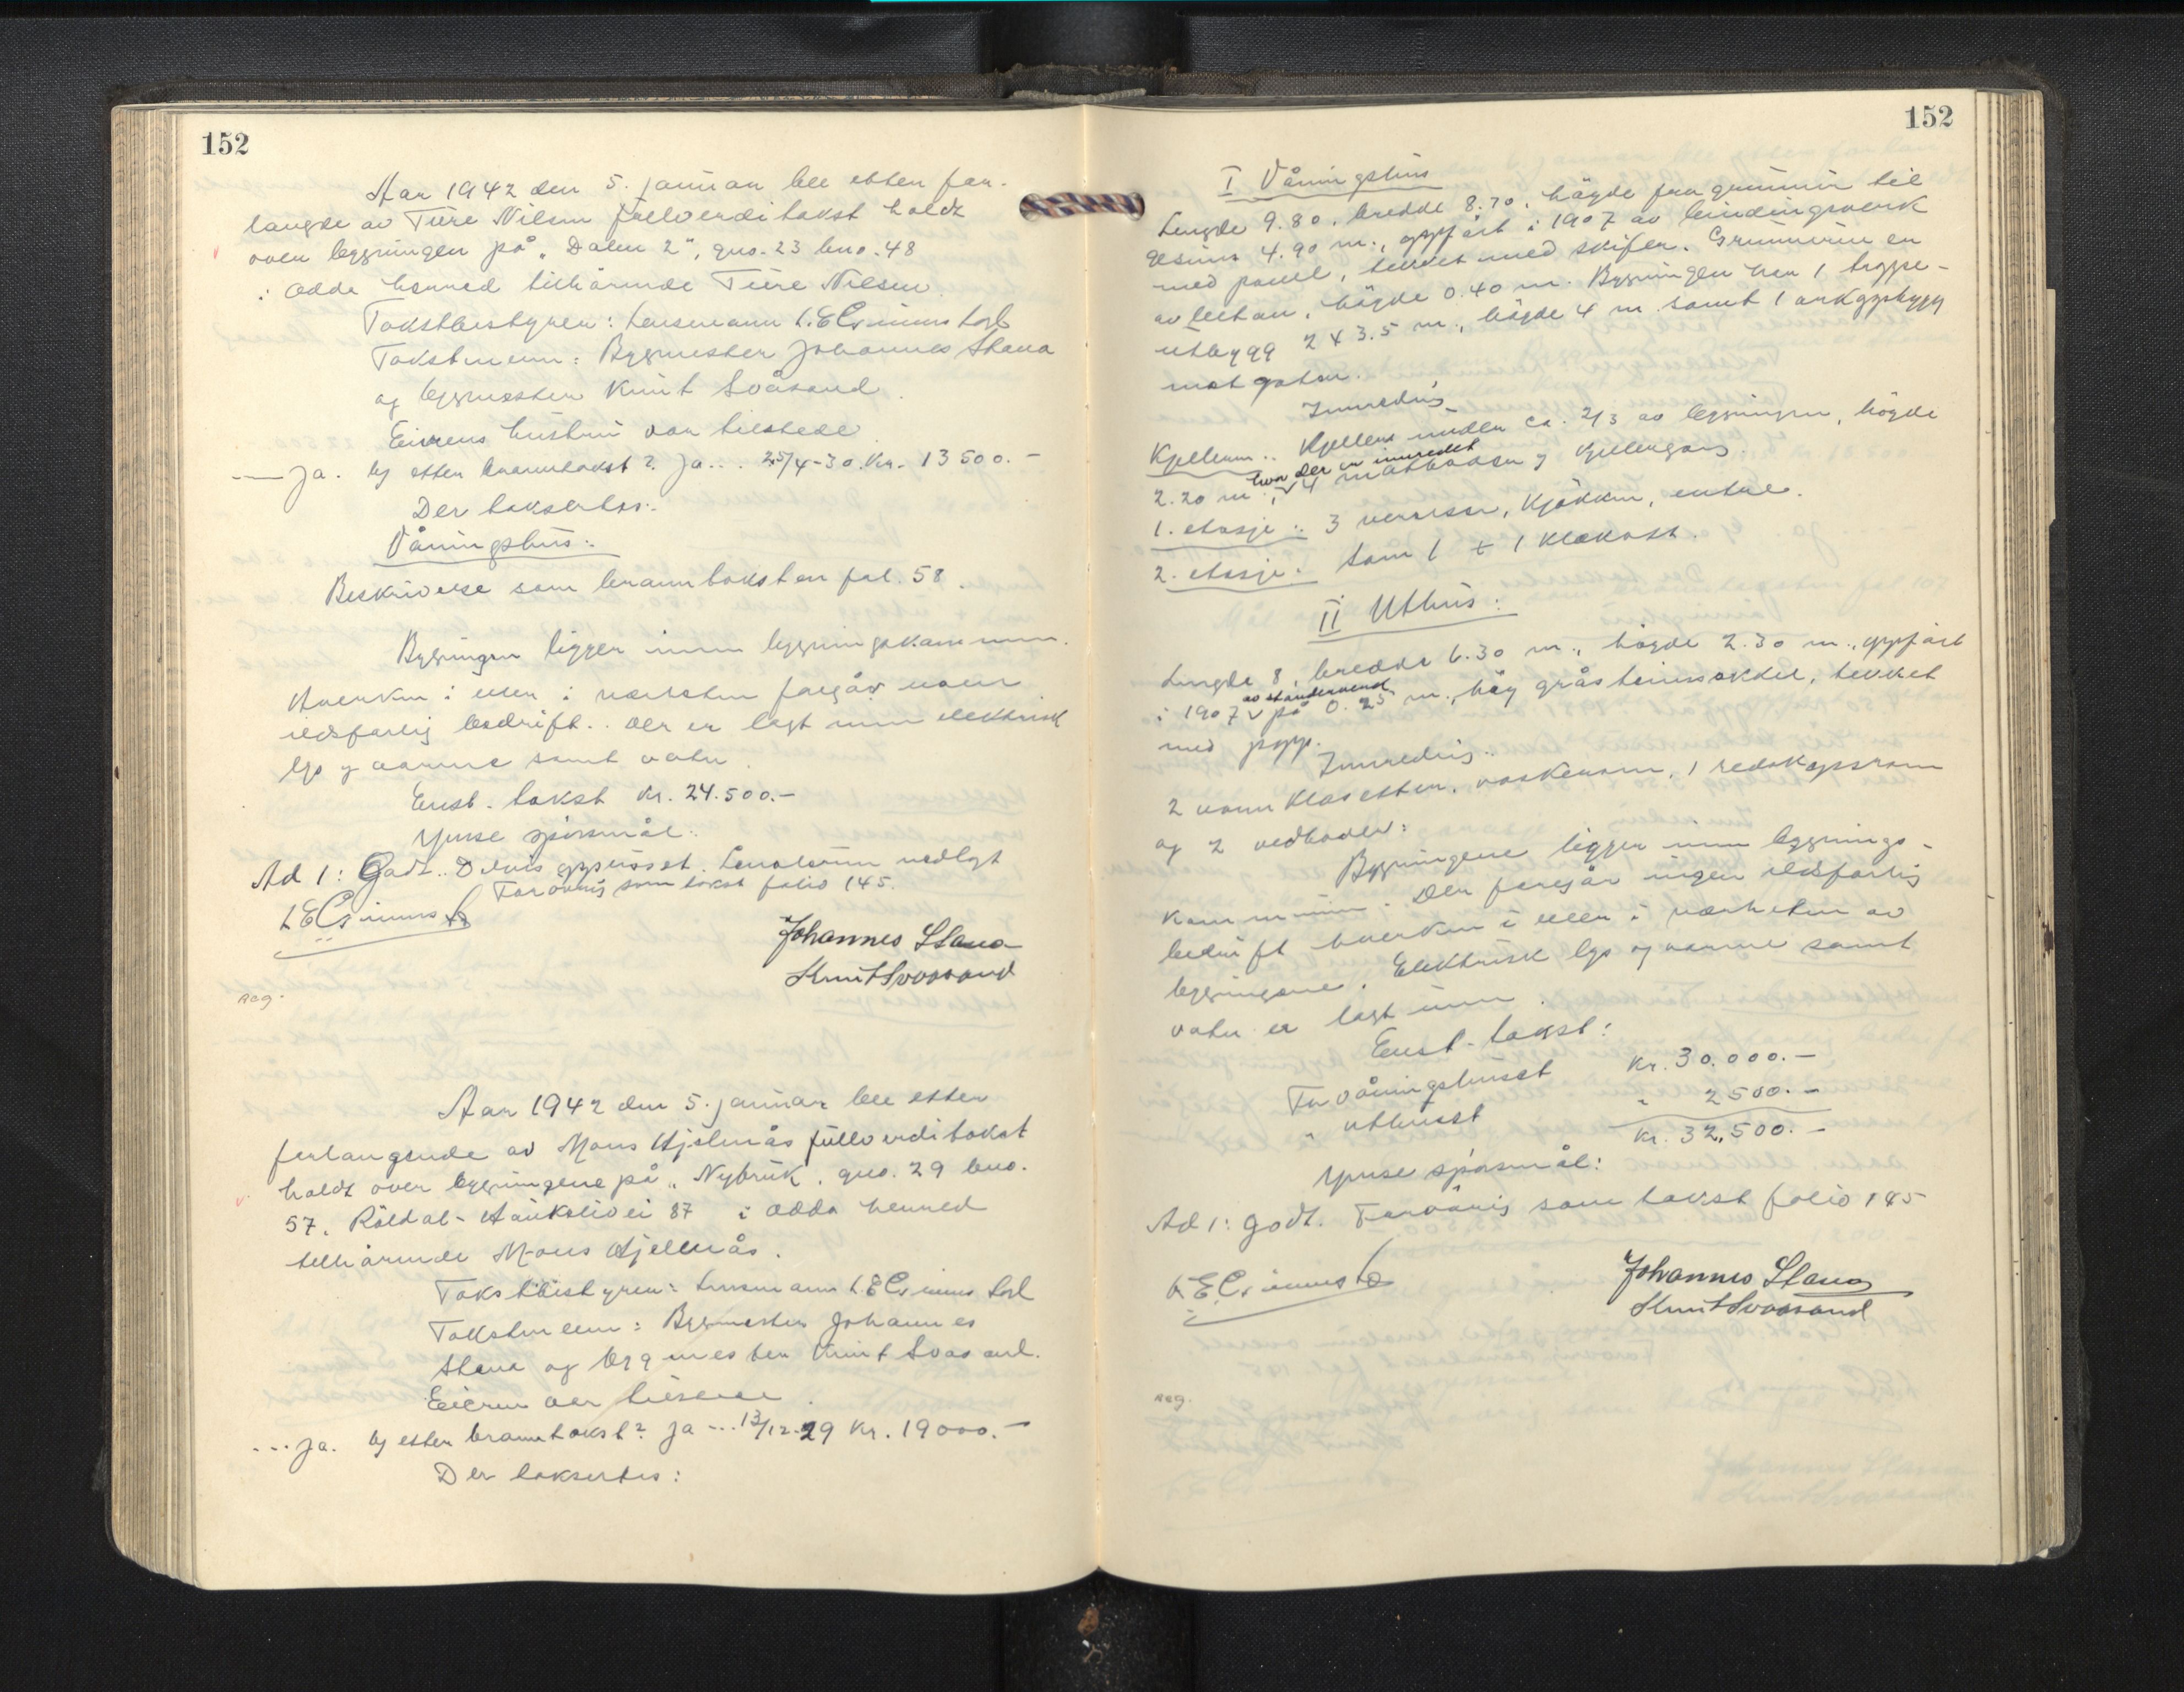 152
Aar 1942 den 5. januar ble etter for-
langde av Ture Nilsen fullverditakst holdt
over bygningen på „Dalen 2“, gno. 23 bno. 48
i Odda herred tilhörende Ture Nilsen.
Takstbestyrer: Lensmann
Takstmenn: Bygmester Johannes Stana
og bygmester Knut Svåsand.
Eierens hustru var tilstede.
— Ja. Ny etter branntakst? Ja... 25/4-30. Kr. 13500.-
Der taksertes:
Våningshus:
Beskrivelse som branntaksten fol. 58.
Bygningen ligger innen bygningskommunen.
Hverken i eller i nærheten foregår noen
ildsfarlig bedrift. Der er lagt inn elektrisk
lys og varme samt vatn.
Enst. takst Kr. 24.500.-
Ymse spörsmål:
Ad 1: Godt. Delvis oppusset. nedlagt
Forövrig som takst folio 145.
Johannes Stana
Knut Svaasand
Reg.
Aar 1942 den 5. januar ble etter
forlangende av Mons Hjelmås fullverditakst
holdt over bygningene på „Nybruk“, gno. 29 bno.
57, Röldal-Haukelivei 87 i Odda herred
tilhörende Mons Hjelmås.
Takstbestyrer: Lensmann
Takstmenn: Bygmester Johannes
Stana og bygmester Knut Svåsand.
Eieren var tilstede.
... Ja. Ny etter branntakst? Ja ... 13/12-29 Kr. 19000.-
Der taksertes:
152
I Våningshus
Lengde 9.80, bredde 8.70, högde fra grunnmur til
gesims 4.90 m., oppfört i 1907 av bindingsverk
med panel, tekket med skifer. Grunnmuren er
av betong, högde 0.40 m. Bygningen har 1 trappe-
utbygg 2 x 3.5 m., högde 4 m samt 1 arkoppbygg
mot gaten.
Innredning
Kjelleren: Kjeller under ca. 2/3 av bygningen, högde
hvor der er innredet
2.20 m., 4 matboder og kjellergang.
1. etasje: 3 værelser, kjökken, entre.
2. etasje: Som 1 + 1 klekott.
II Uthus:
Lengde 8, bredde 6.30 m., högde 2.30 m., oppfört
av stenderverk
i 1907 på 0.25 m. höy gråsteinsokkel, tekket
med papp.
Innredning:
2 vannklosetter, vaskerom, 1 redskapsrom
og 2 vedboder.
Bygningene ligger innen bygnings-
kommunen. Der foregår ingen ildsfarlig
bedrift hverken i eller i nærheten av
bygningene. Elektrisk lys og varme samt
vatn er lagt inn.
Enst. takst:
For våningshuset Kr. 30.000.-
" uthuset " 2500.-
Kr. 32.500.-
Ymse spörsmål:
Ad 1: godt. Forövrig som takst folio 145
Johannes Stana
Knut Svaasand
Reg.